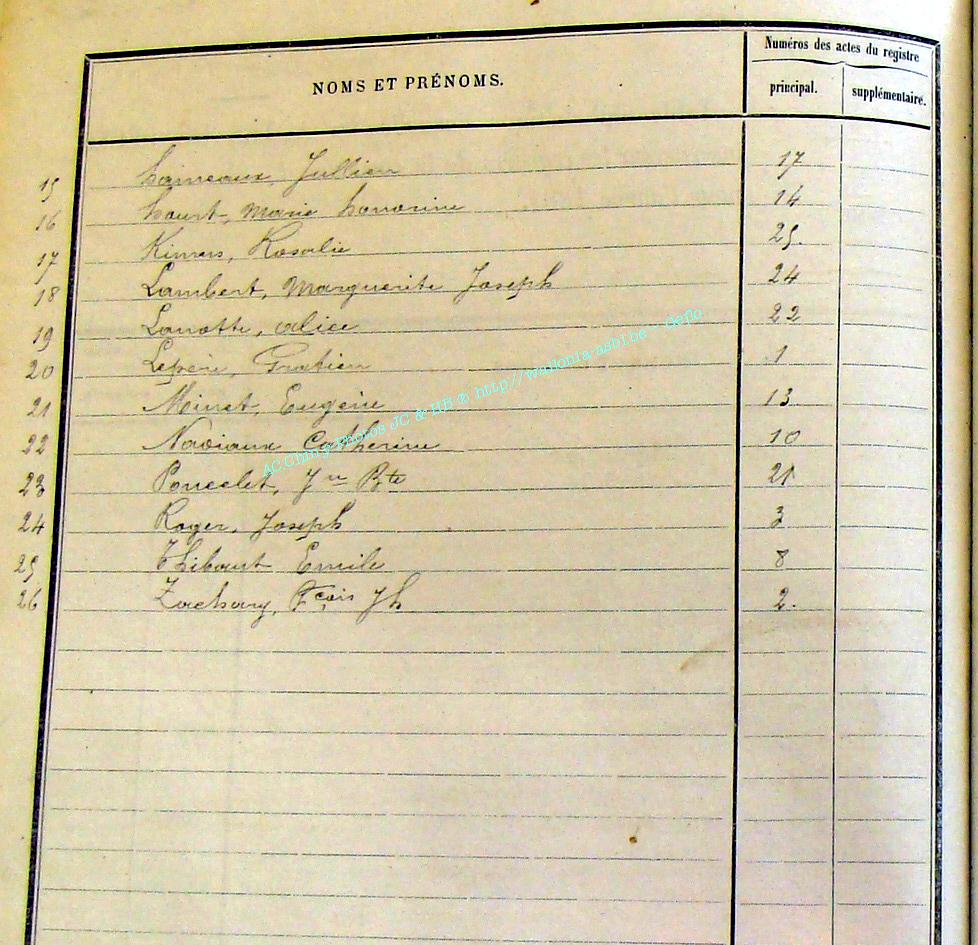 Numéros des actes du registre
NOMS ET PRÉNOMS. principal. supplémentaire.
15 hameaux, Jullien 17
16 hourt, Marie honorine 14
17 Rosalie 25.
18 Lambert, Marguerite Joseph 24
19 Lanotte, alice 22
20 Lepère, Gratien 1
21 Minet, Eugène 13
22 Naviaux Catherine 10
23 Poncelet, Jn Bte 21
24 Roger, Joseph 3
25 Thibaut Emile 8
26 Zachary, Fçois Jh 2.
AC Chiny Photos JC & HB @ http://wallonia-asbl.be - Geflo